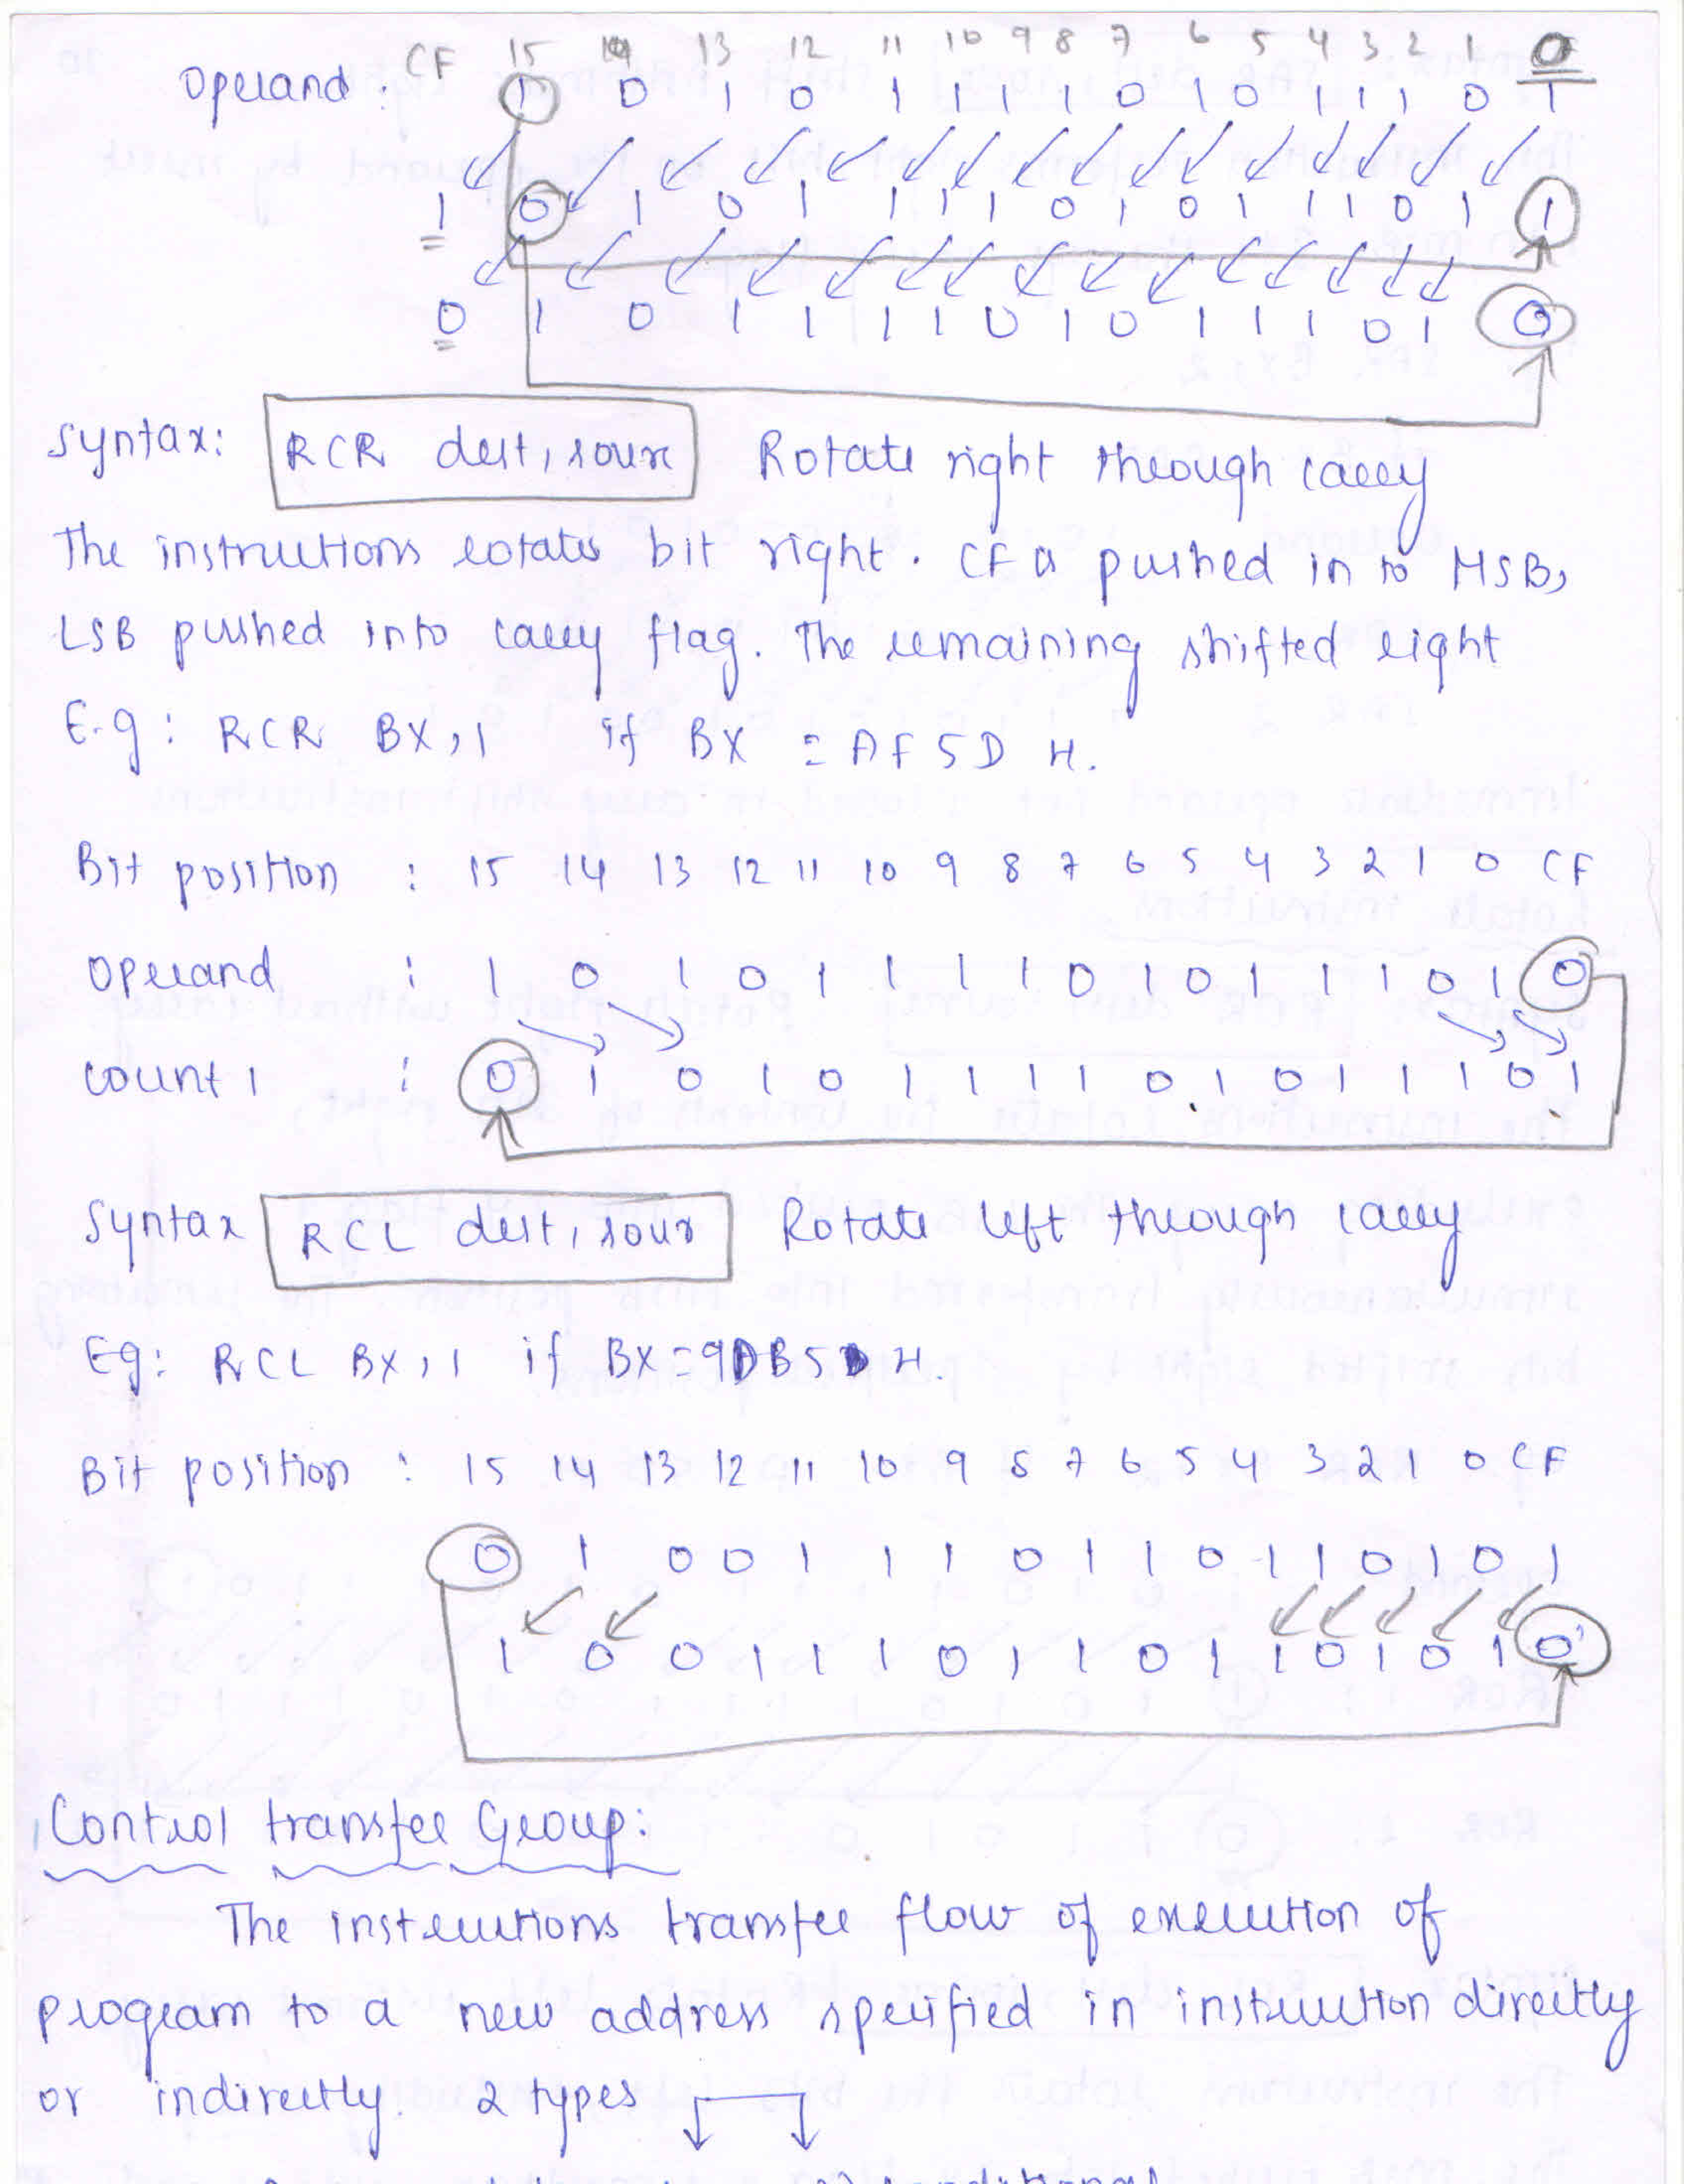 CF 15 14 13 12 11 10 9 8 7 6 5 4 3 2 1 0
Operand : 1 0 1 0 1 1 1 1 0 1 0 1 1 1 0 1
1 0 1 0 1 1 1 1 0 1 0 1 1 1 0 1 1
0 1 0 1 1 1 1 0 1 0 1 1 1 0 1 0
Syntax: RCR dest, sour Rotate right through carry
The instructions rotates bit right. CF is pushed in to MSB,
LSB pushed into carry flag. The remaining shifted right
E.g: RCR BX, 1 if BX = AF5D H.
Bit position : 15 14 13 12 11 10 9 8 7 6 5 4 3 2 1 0 CF
Operand : 1 0 1 0 1 1 1 1 0 1 0 1 1 1 0 1 0
count 1 : 0 1 0 1 0 1 1 1 1 0 1 0 1 1 1 0 1
Syntax RCL dest, sour Rotate left through carry
Eg: RCL BX, 1 if BX = 9DB5 H.
Bit position : 15 14 13 12 11 10 9 8 7 6 5 4 3 2 1 0 CF
0 1 0 0 1 1 1 0 1 1 0 1 1 0 1 0 1
1 0 0 1 1 1 0 1 1 0 1 1 0 1 0 1 0
Control transfer Group:
The instructions transfer flow of execution of
program to a new address specified in instruction directly
or indirectly. 2 types